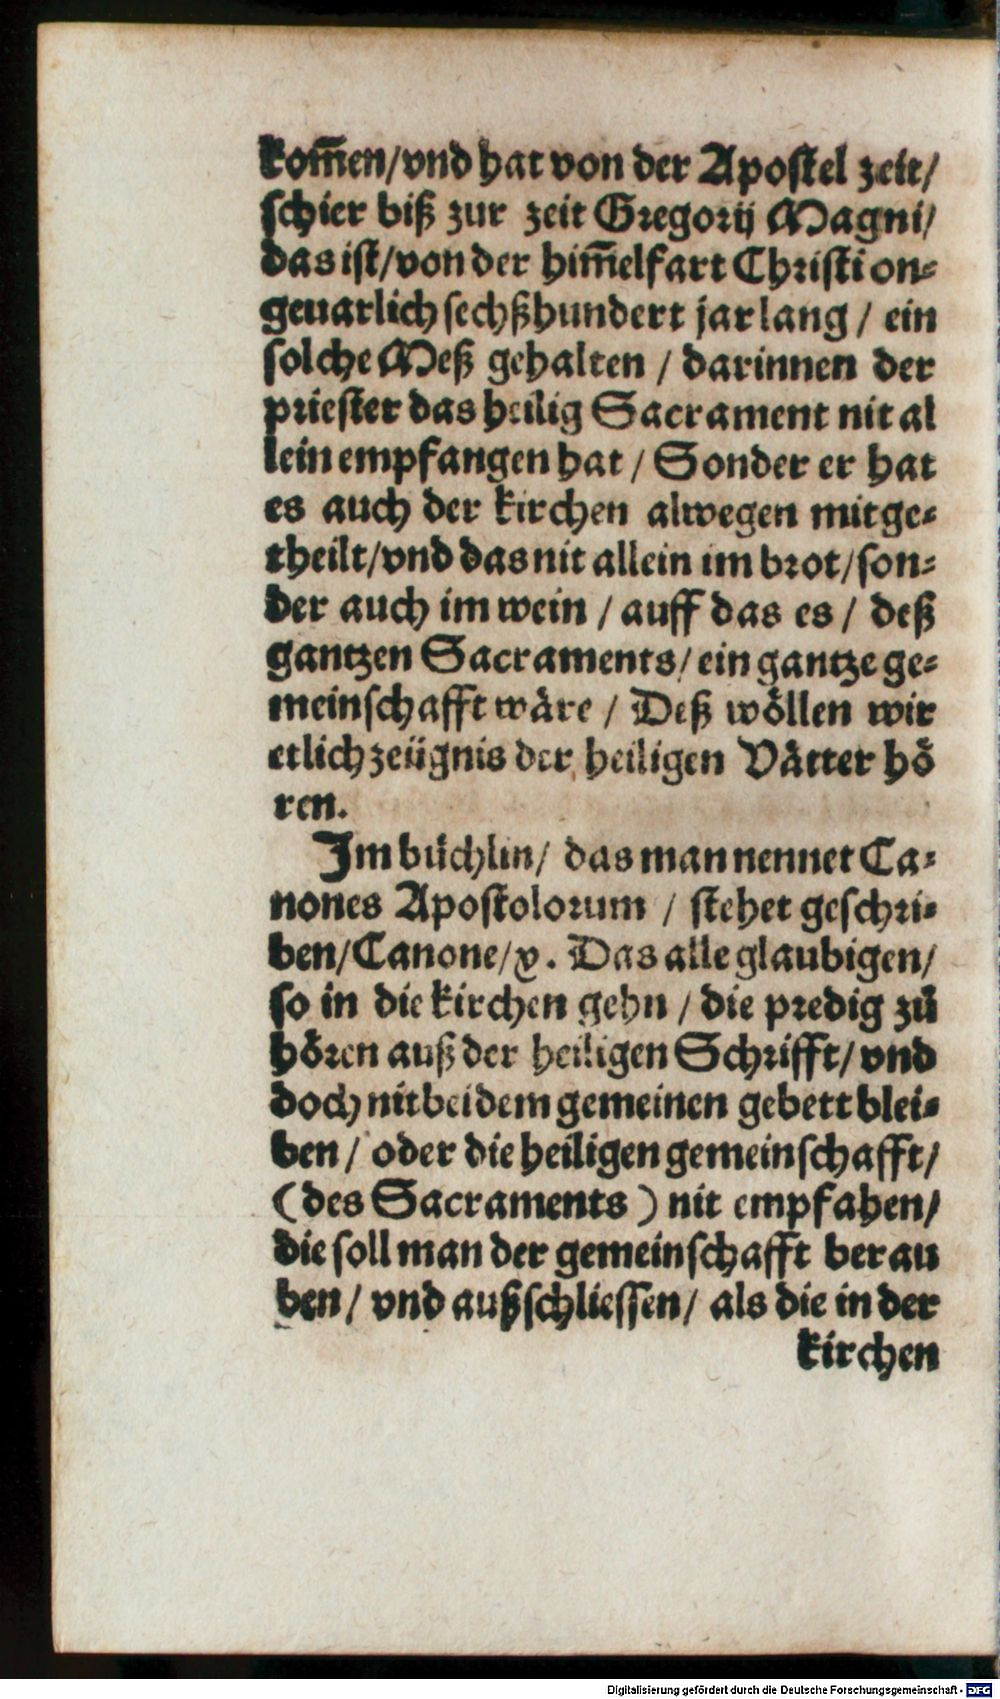 kom̃en/vnd hat von der Apostel zeit/
schier biß zur zeit Gregorij Magni/
das ist/von der him̃elfart Christi on⸗
geuarlich sechßhundert jar lang / ein
solche Meß gehalten / darinnen der
priester das heilig Sacrament nit al
lein empfangen hat / Sonder er hat
es auch der kirchen alwegen mitge⸗
theilt/vnd das nit allein im brot/son⸗
der auch im wein / auff das es / deß
gantzen Sacraments/ ein gantze ge⸗
meinschafft wåre / Deß wöllen wir
etlich zeügnis der heiligen Våtter hö
ren.
Im büchlin/ das man nennet Ca⸗
nones Apostolorum / stehet geschri⸗
ben/Canone/x. Das alle glaubigen/
so in die kirchen gehn / die predig zů
hören auß der heiligen Schrifft/ vnd
doch nit bei dem gemeinen gebett blei⸗
ben / oder die heiligen gemeinschafft/
(des Sacraments ) nit empfahen/
die soll man der gemeinschafft berau
ben / vnd außschliessen/ als die in der
kirchen
Digitalisierung gefördert durch die Deutsche Forschungsgemeinschaft - DFG